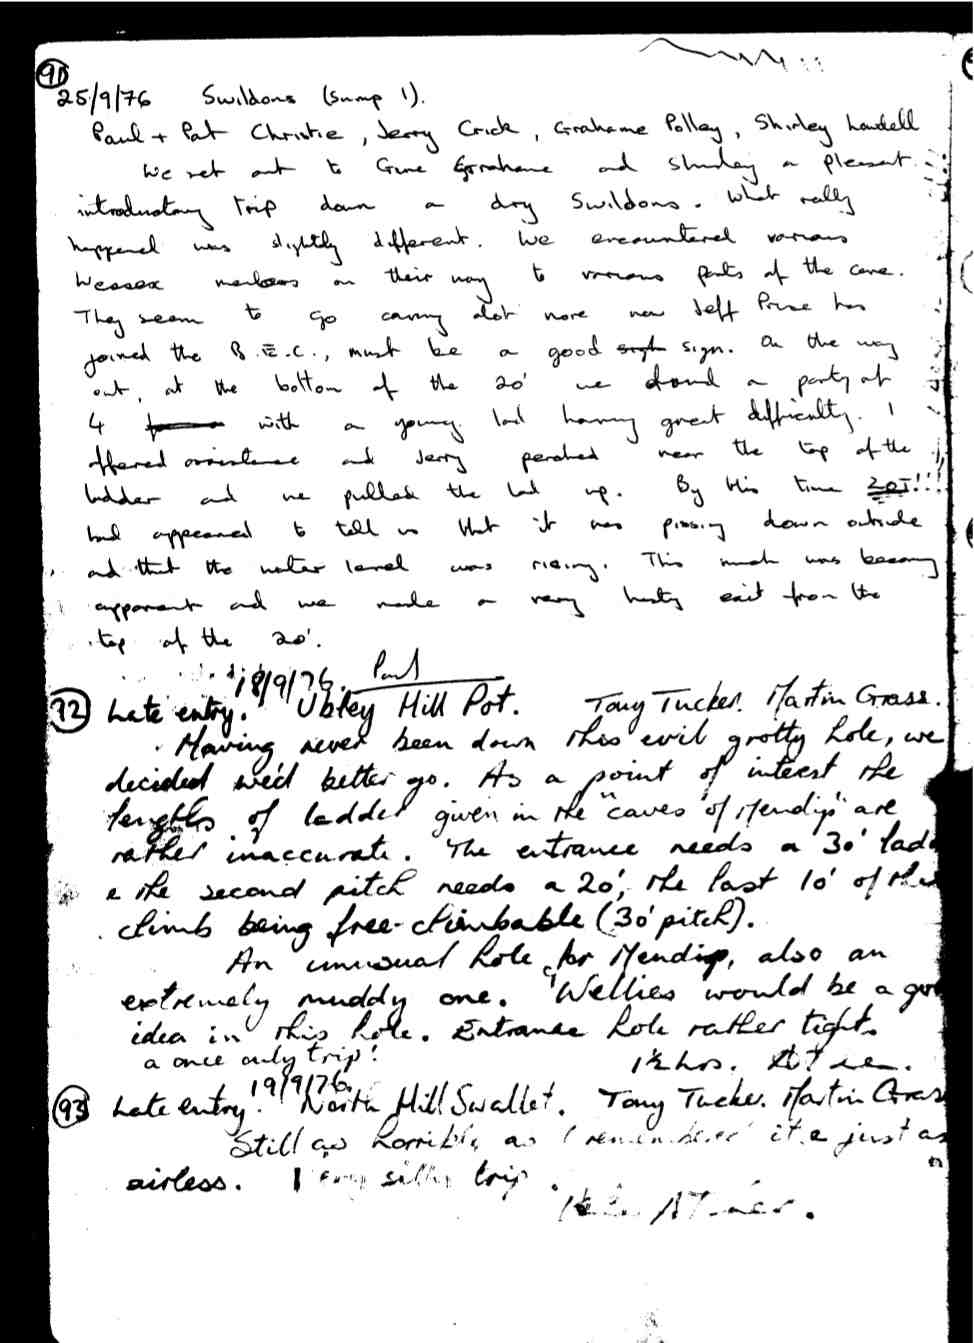 91
25/9/76 Swildons (Sump 1).
Paul + Pat Christie, Jerry Crick, Grahame Polley, Shirley
We set out to Give Grahame and Shirley a pleasant
introductory trip down a dry Swildons. What really
happened was slightly different. We encountered various
Wessex members on their way to various parts of the cave.
They seem to go caving alot more now Jeff Price has
joined the B.E.C., must be a good sign. On the way
out, at the bottom of the 20' we found a party of
4 with a young lad having great difficulty. I
offered assistance and Jerry perched near the top of the
ladder and we pulled the lad up. By this time
had appeared to tell us that it was pissing down outside
and that the water level was rising. This much was becoming
apparent and we made a very hasty exit from the
top of the 20'.
Paul
18/9/76.
92 Late entry. Ubley Hill Pot. Tony Tucker. Martin Grass.
Having never been down this evil grotty hole, we
decided we'd better go. As a point of interest the
lengths of ladder given in the "caves of Mendip" are
rather inaccurate. The entrance needs a 30' ladd
& the second pitch needs a 20', the last 10' of the
climb being free-climbable (30' pitch).
An unusual hole for Mendip, also an
extremely muddy one. Wellies would be a good
idea in this hole. Entrance hole rather tight.
a once only trip! 1½ hrs.
19/9/76
93 Late entry. North Hill Swallet. Tony Tucker. Martin Grass
Still as horrible as I remembered it & just as
airless. silly trip.